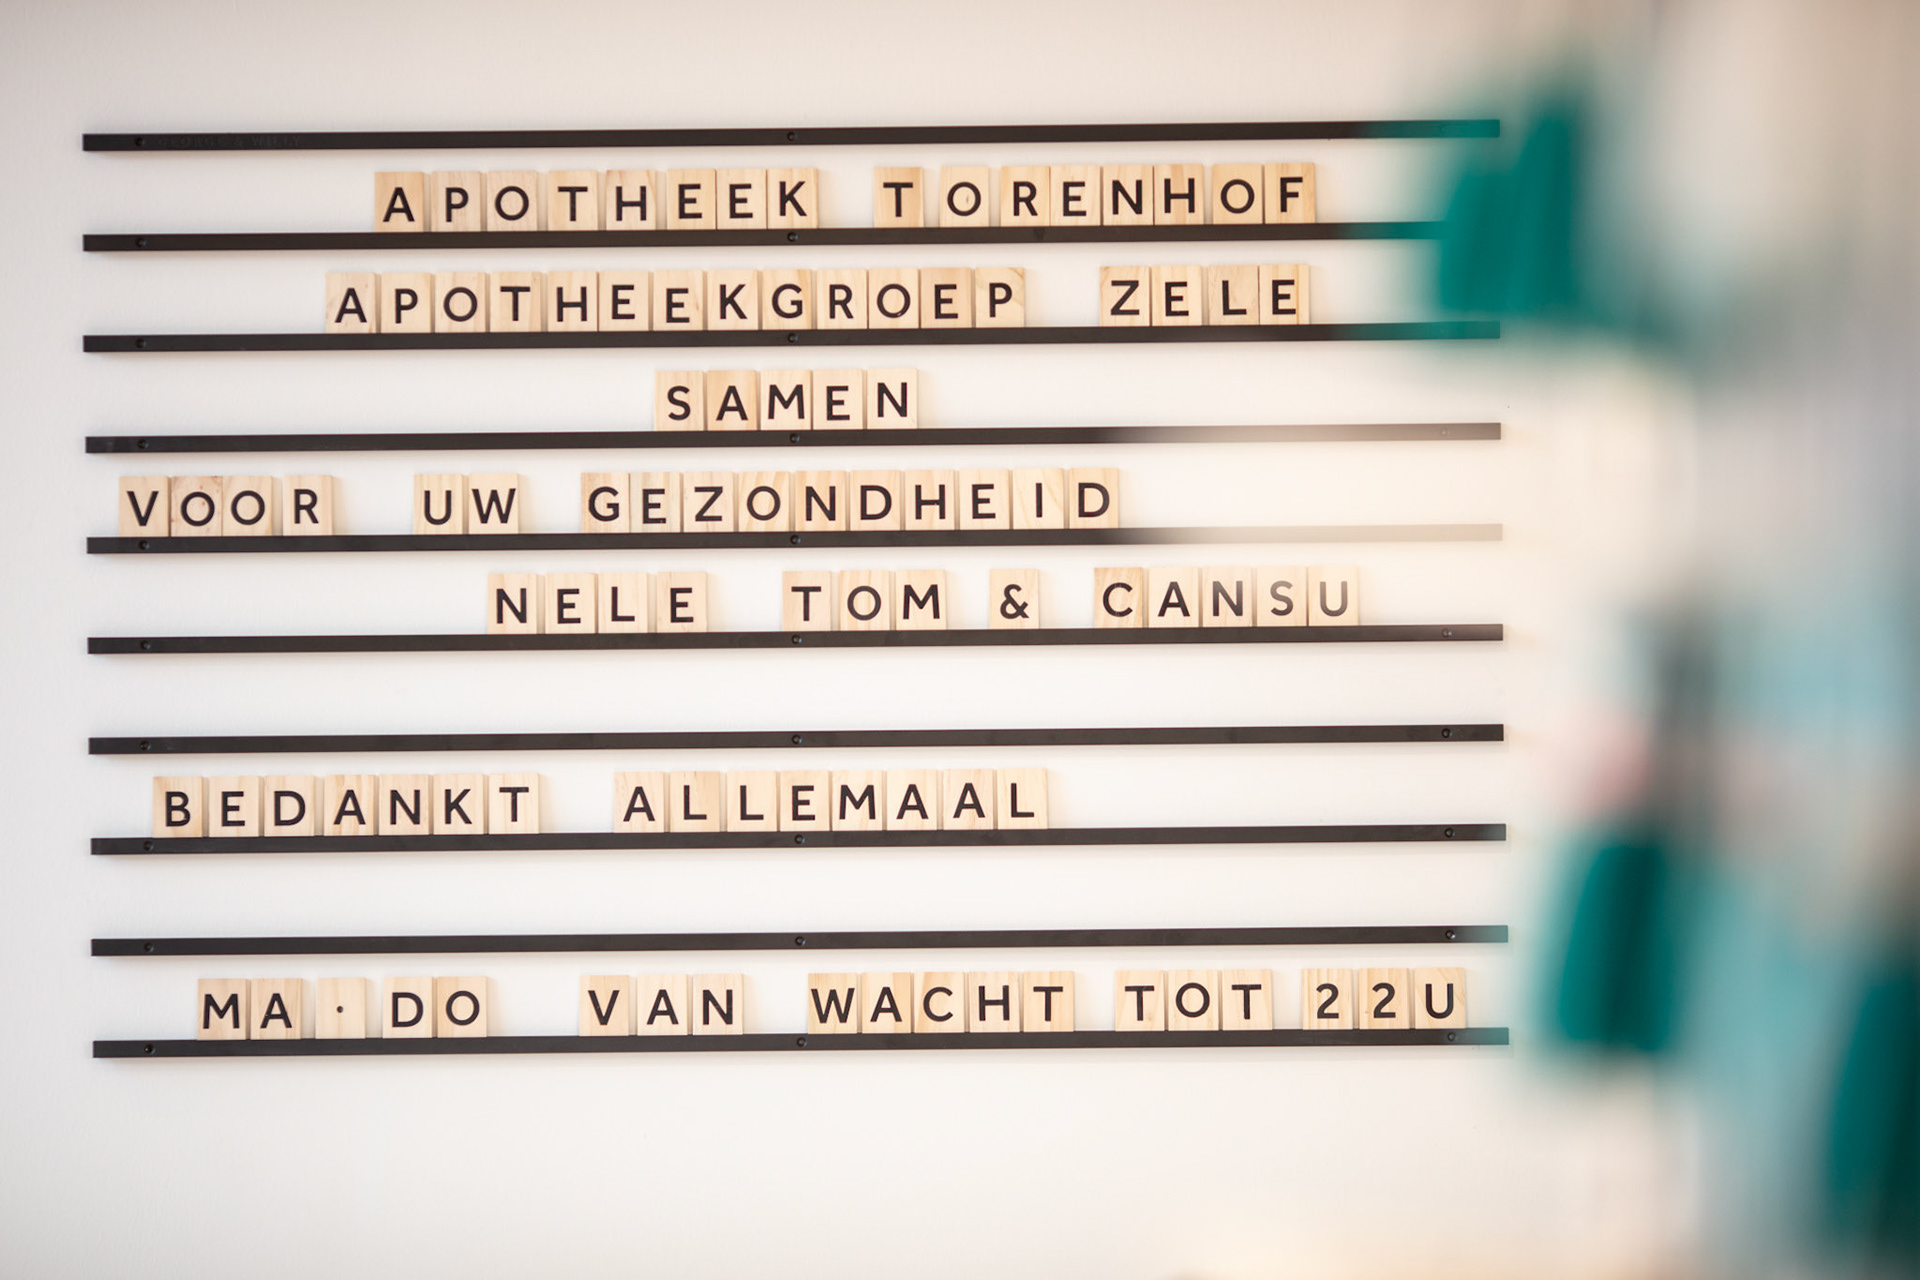 APOTHEEK TORENHOF
APOTHEEKGROEP ZELE
SAMEN
VOOR UW GEZONDHEID
NELE TOM & CANSU
BEDANKT ALLEMAAL
MA · DO VAN WACHT TOT 22U